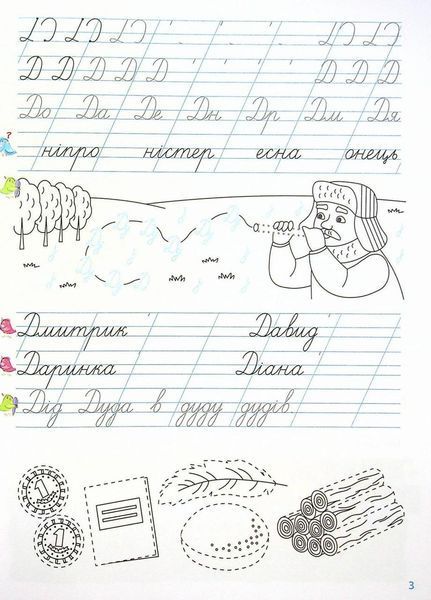 Д Д Д
Д Д Д Д Д Д Д Д
До Да Де Дн Др Дм Дя
? ніпро ністер есна онець
Дмитрик Давид
Даринка Діана
Дід Дуда в дуду дудів.
1
1
3